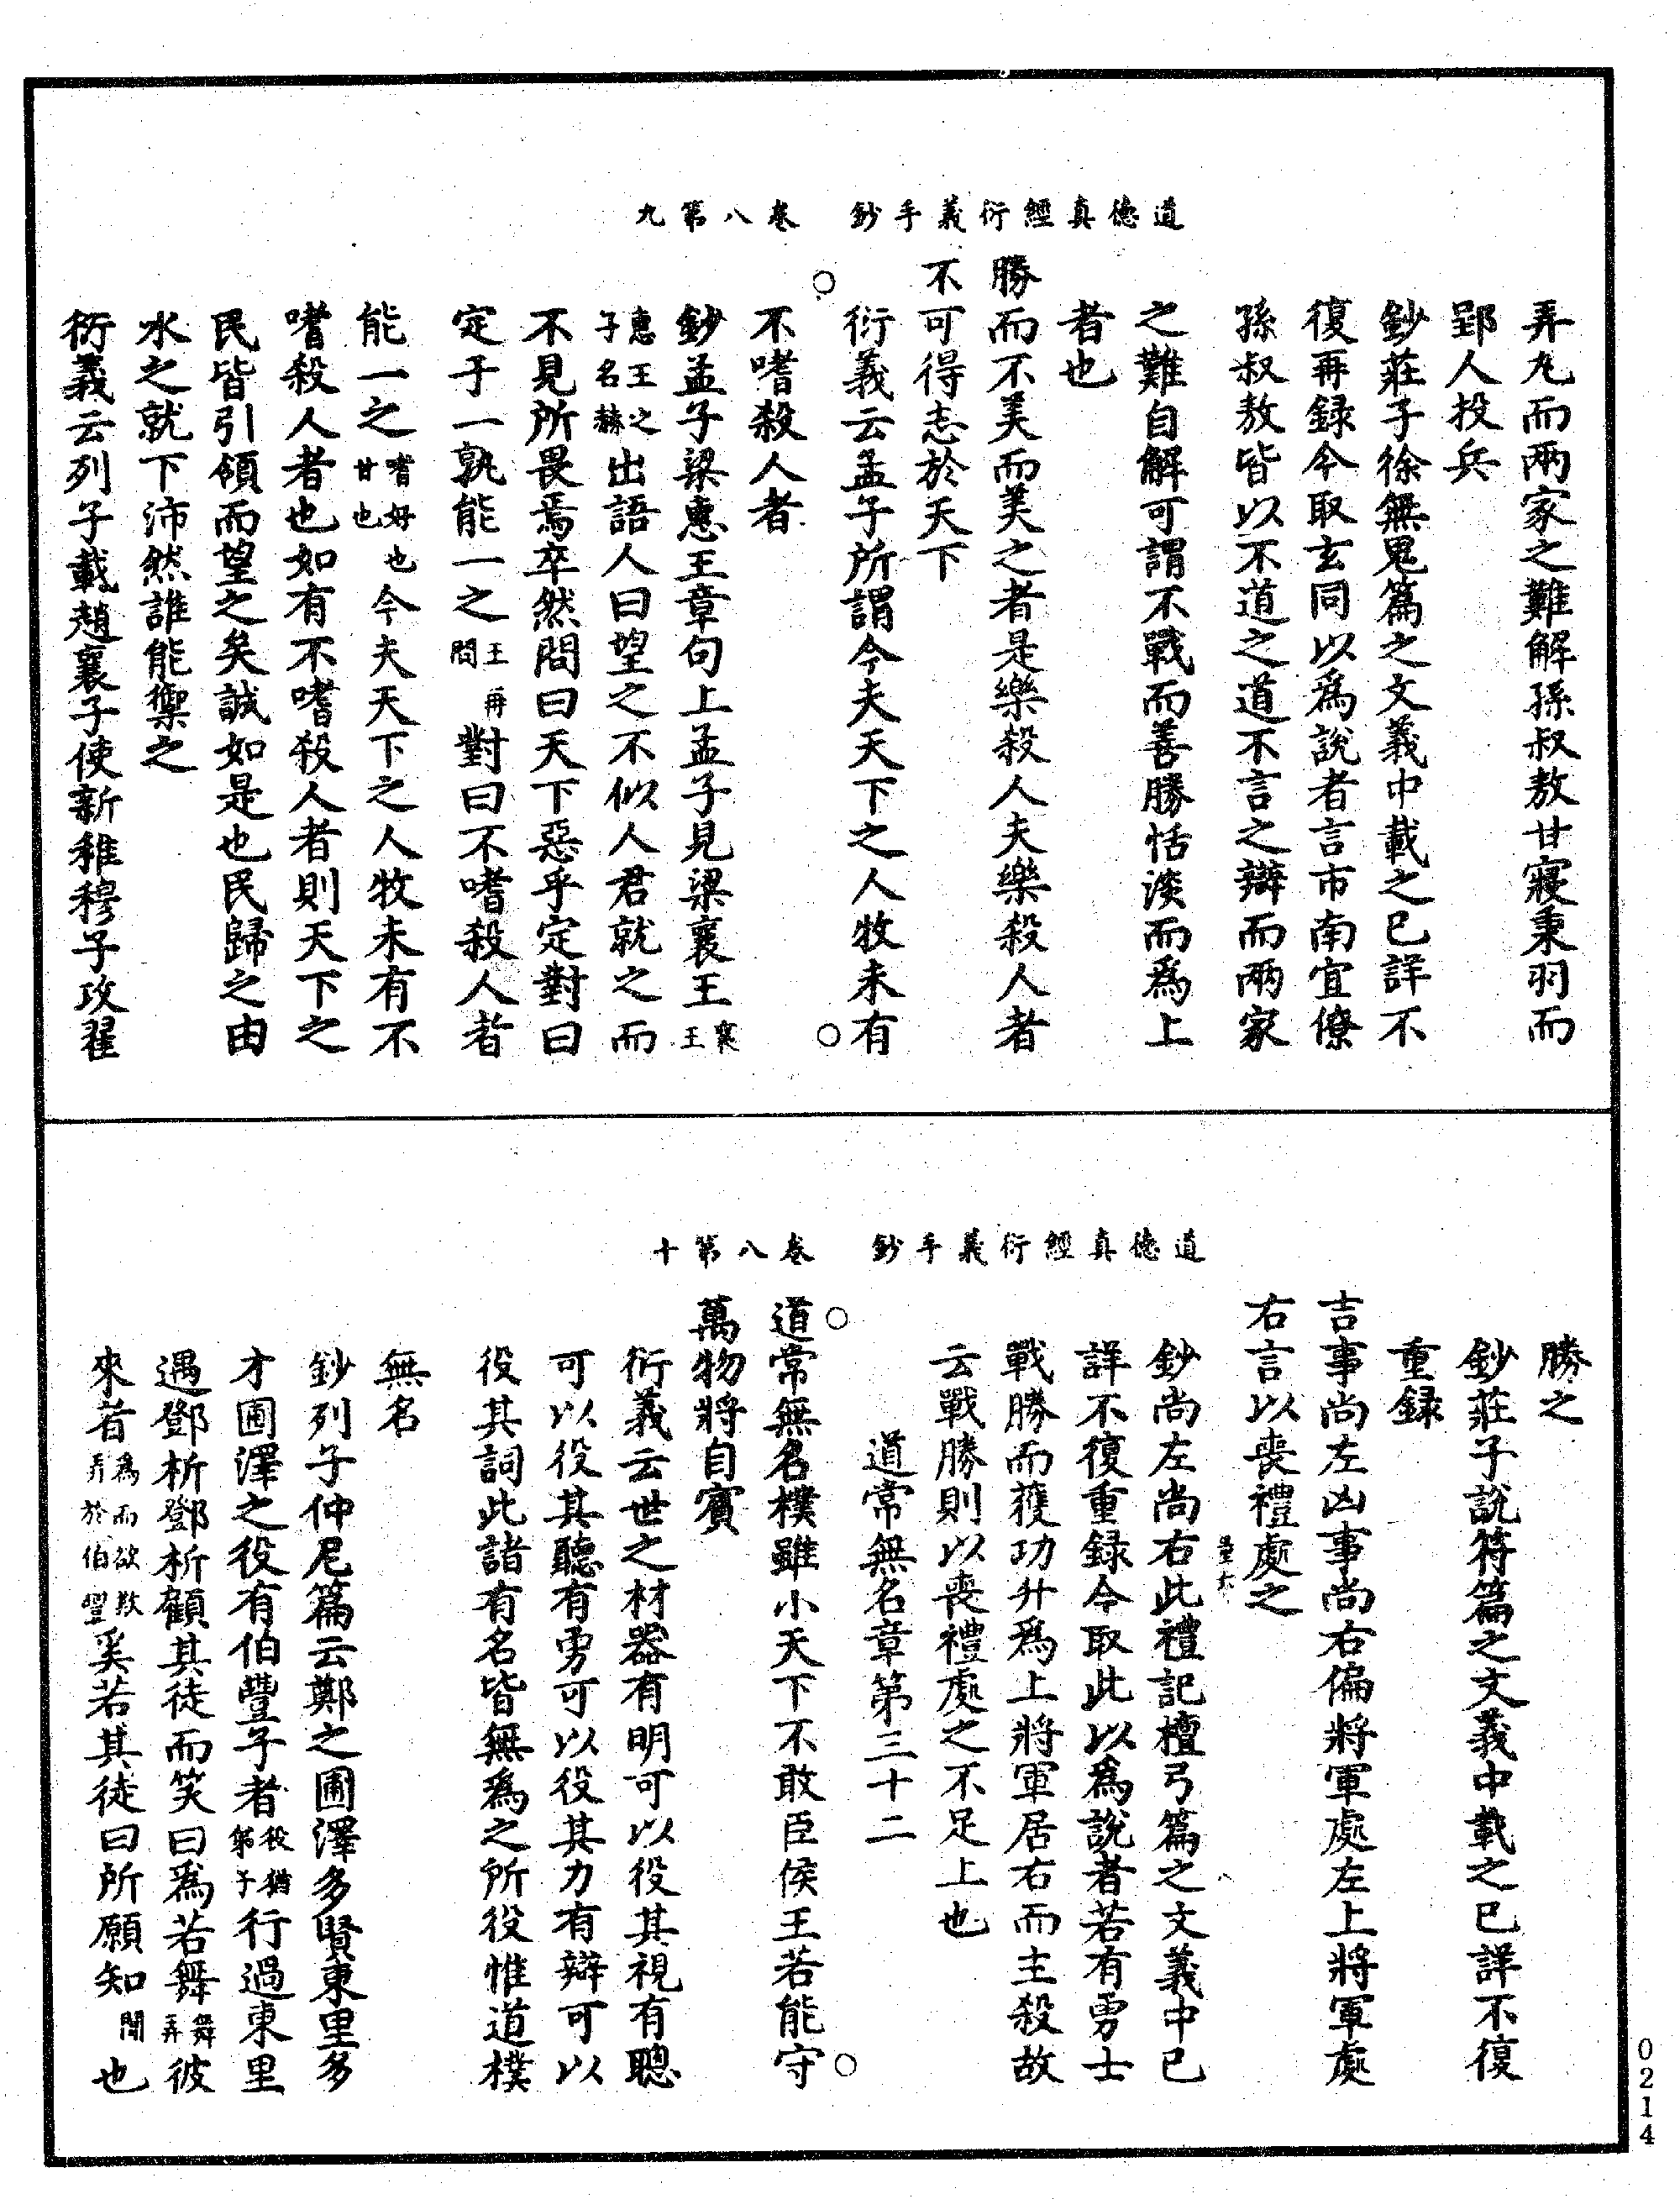 道德真經衍義手鈔　卷八第九
弄丸而兩家之難解孫叔敖甘寢秉羽而
郢人投兵
鈔莊子徐無鬼篇之文義中載之已詳不
復再録今取玄同以為說者言市南宜僚
孫叔敖皆以不道之道不言之辯而兩家
之難自解可謂不戰而善勝恬淡而為上
者也
勝而不美而美之者是樂殺人夫樂殺人者
不可得志於天下
衍義云孟子所謂今夫天下之人牧未有
不嗜殺人者
鈔孟子梁惠王章句上孟子見梁襄王襄王
惠王之子名赫出語人曰望之不似人君就之而
不見所畏焉卒然問曰天下惡乎定對曰
定于一孰能一之王再問對曰不嗜殺人者
能一之嗜好也甘也今夫天下之人牧未有不
嗜殺人者也如有不嗜殺人者則天下之
民皆引領而望之矣誠如是也民歸之由
水之就下沛然誰能禦之
衍義云列子載趙襄子使新稚穆子攻翟
道德真經衍義手鈔　卷八第十
勝之
鈔莊子說符篇之文義中載之已詳不復
重録
吉事尚左凶事尚右偏將軍處左上將軍處
右言以喪禮處之
鈔尚左尚右此禮記檀弓篇之文義中已
詳不復重録今取此以為說者若有勇士
戰勝而獲功升為上將軍居右而主殺故
云戰勝則以喪禮處之不足上也
道常無名章第三十二
道常無名樸雖小天下不敢臣侯王若能守
萬物將自賓
衍義云世之材器有明可以役其視有聰
可以役其聽有勇可以役其力有辯可以
役其詞此諸有名皆無為之所役惟道樸
無名
鈔列子仲尼篇云鄭之圃澤多賢東里多
才圃澤之役有伯豐子者役猶弟子行過東里
遇鄧析鄧析顧其徒而笑曰為若舞舞弄彼
來者為而欲欺弄於伯豐奚若其徒曰所願知聞也
0214